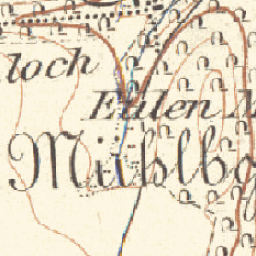 loch
Eulen M
Mühlb